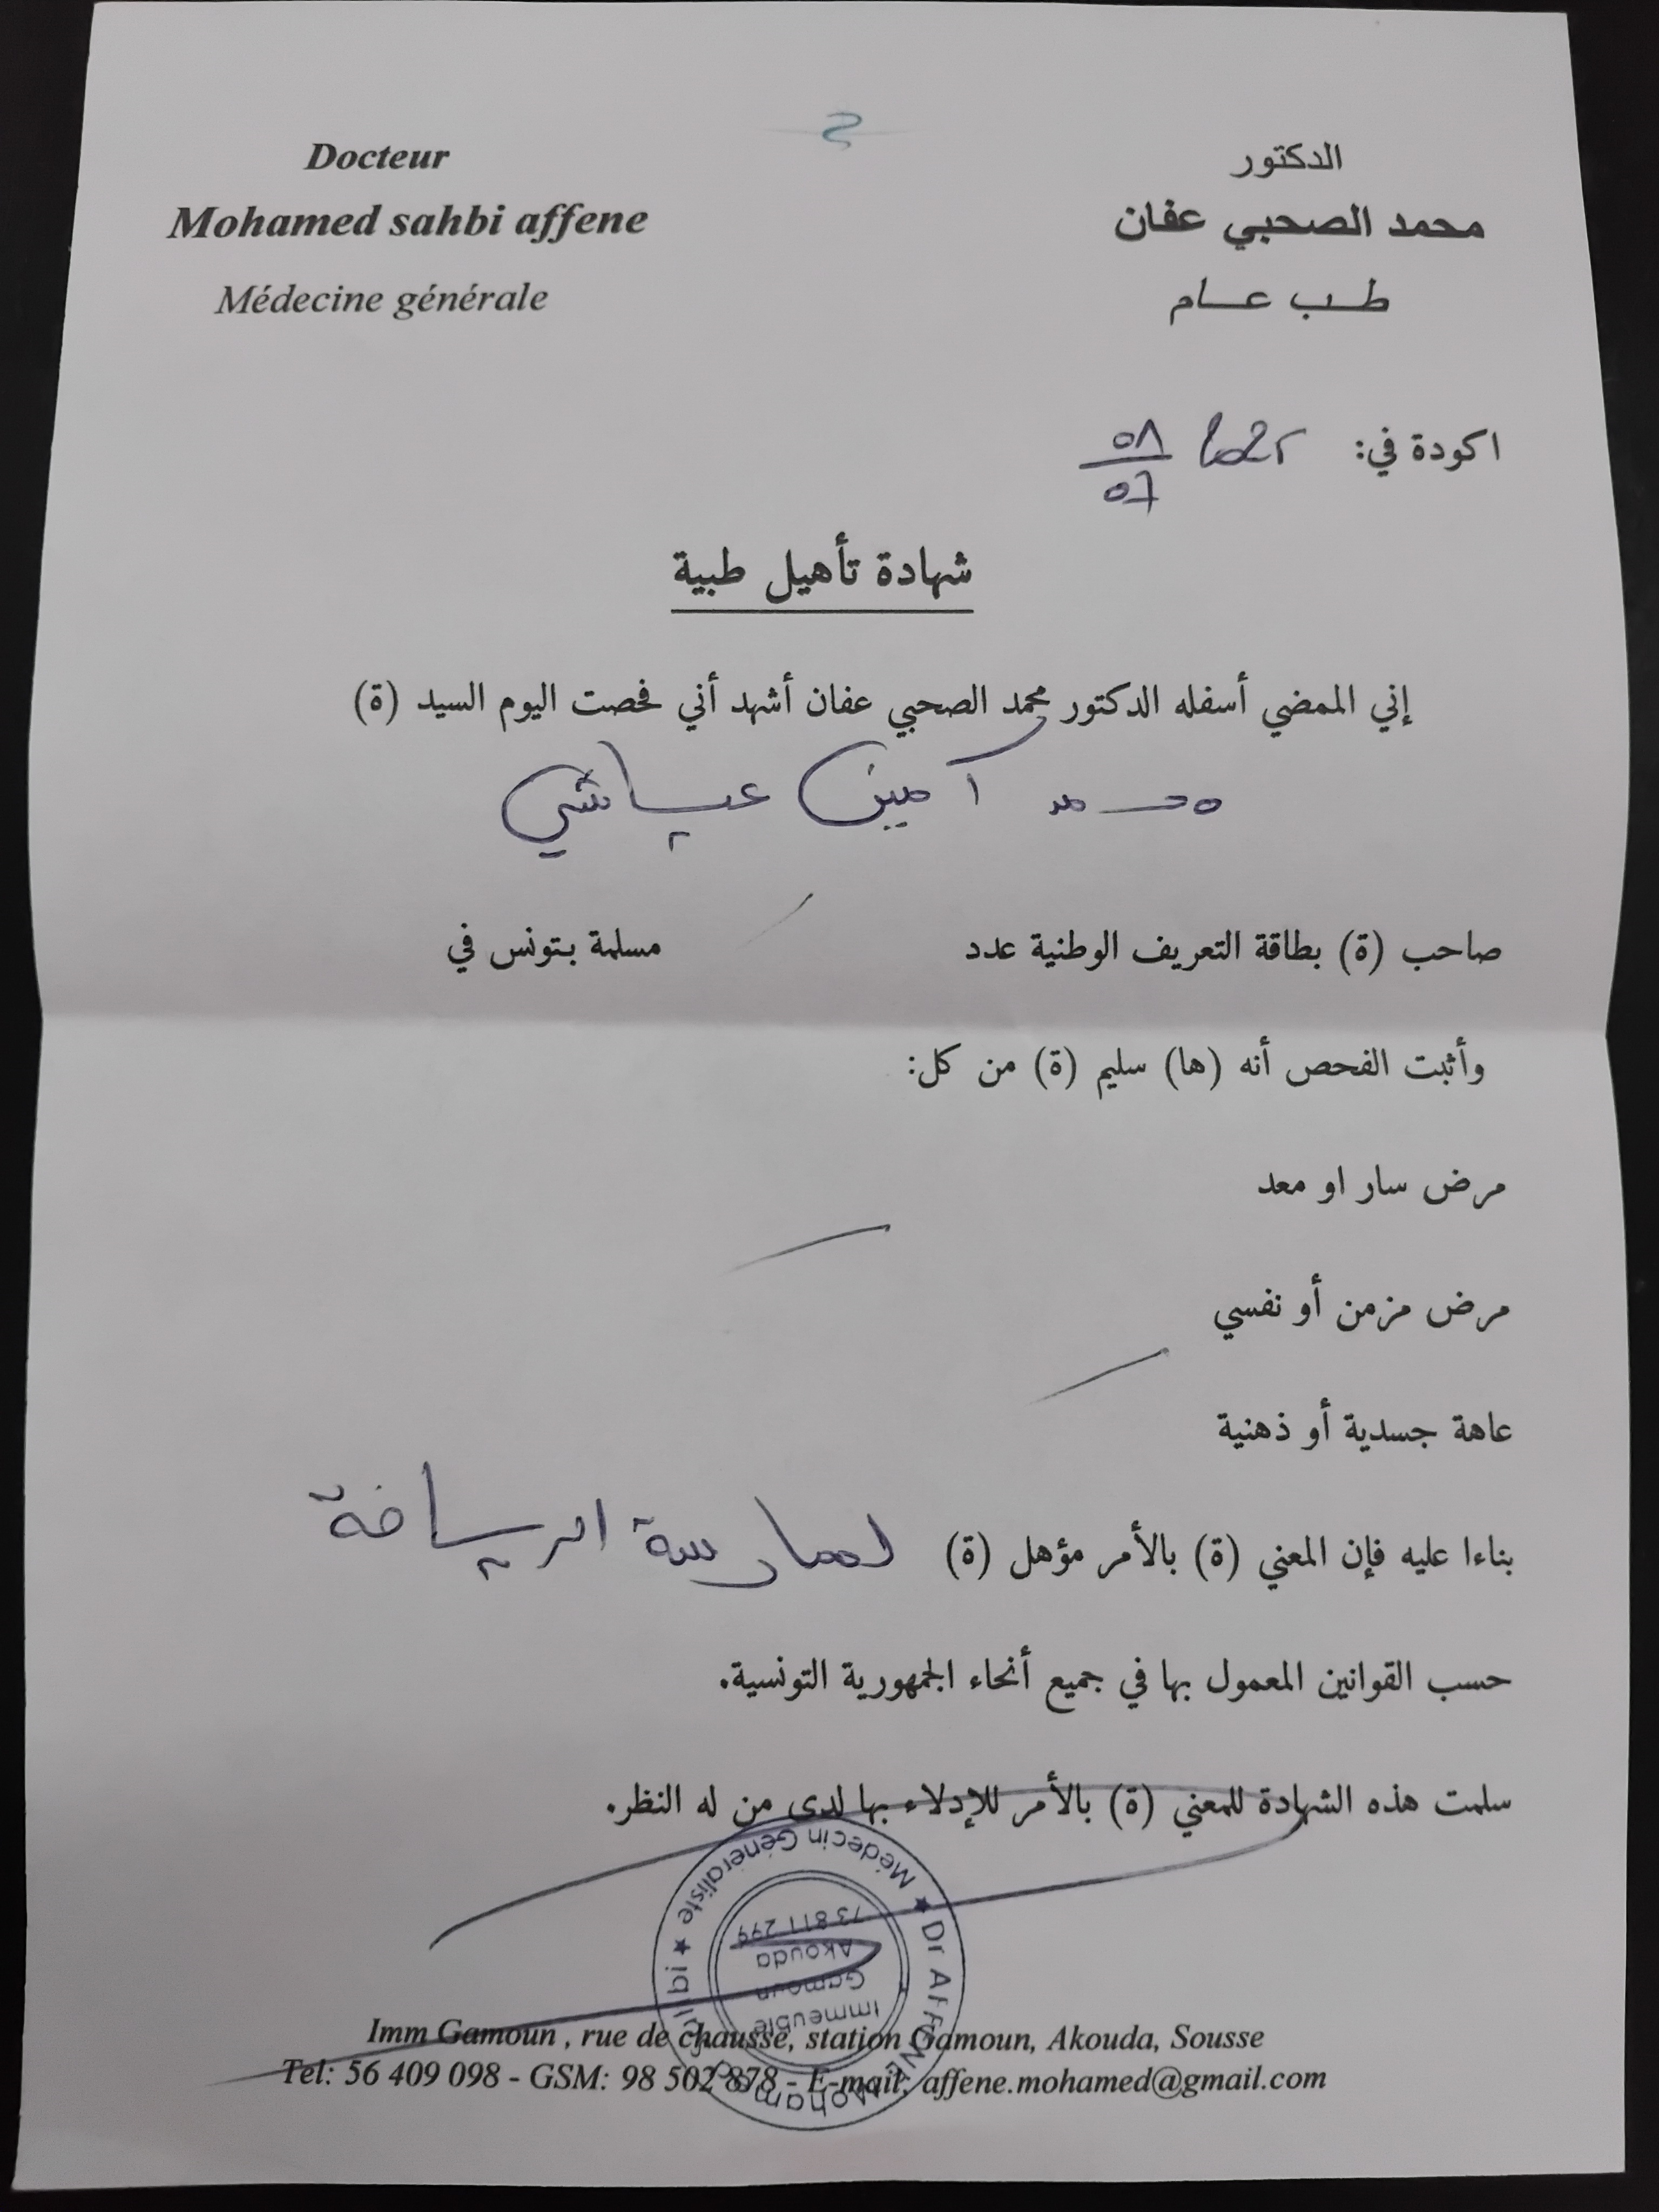 Docteur
Mohamed sahbi affene
Médecine générale
الدكتور
محمد الصحبي عفان
طب عام
اكودة في: 2025 08/07
شهادة تأهيل طبية
إني الممضي أسفله الدكتور محمد الصحبي عفان أشهد أني فحصت اليوم السيد (ة)
محمد أمين عياشي
صاحب (ة) بطاقة التعريف الوطنية عدد مسلمة بتونس في
وأثبت الفحص أنه (ها) سليم (ة) من كل:
مرض سار او معد
مرض مزمن أو نفسي
عاهة جسدية أو ذهنية
بناءا عليه فإن المعني (ة) بالأمر مؤهل (ة) لممارسة الرياضة
حسب القوانين المعمول بها في جميع أنحاء الجمهورية التونسية.
سلمت هذه الشهادة للمعني (ة) بالأمر للإدلاء بها لدى من له النظر.
Dr AFFENE Mohamed Sahbi ★ Médecin Généraliste ★
Immeuble
Gamoun
Akouda
73 811 299
Imm Gamoun , rue de chausse, station Gamoun, Akouda, Sousse
Tel: 56 409 098 - GSM: 98 502 878 - E-mail: affene.mohamed@gmail.com